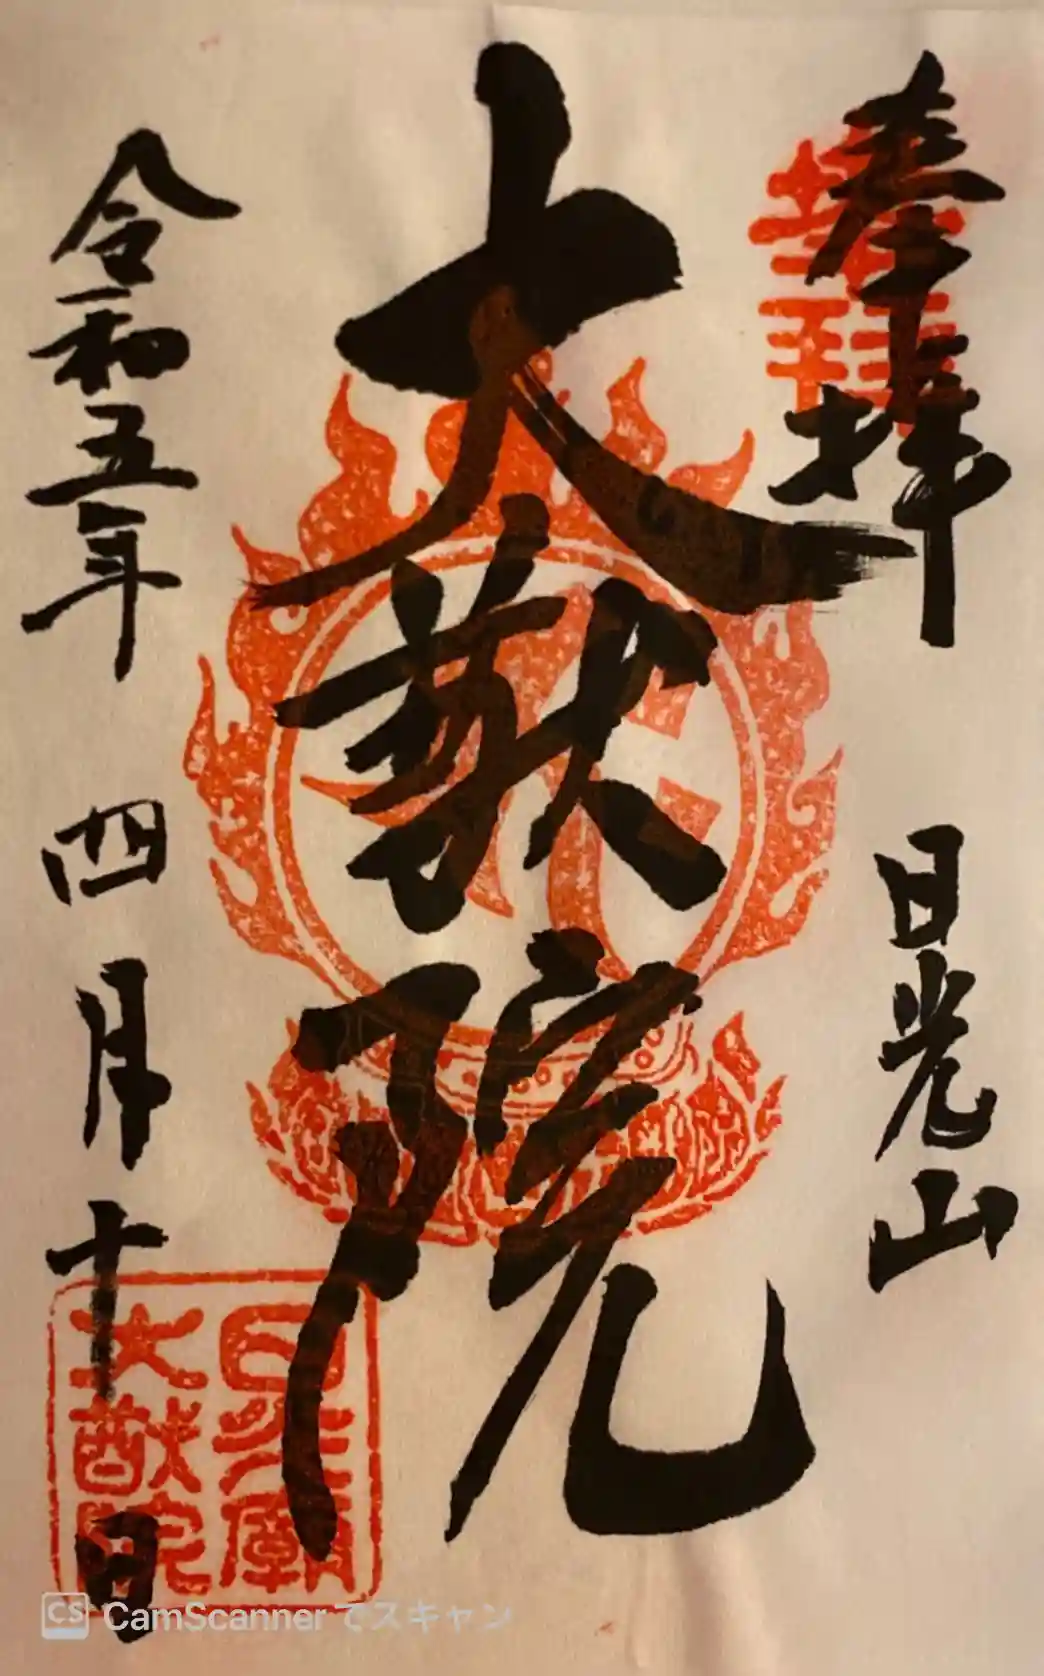 奉拝
日光山
大猷院
令和五年
四月十日
日光廟
大猷院
CamScannerでスキャン